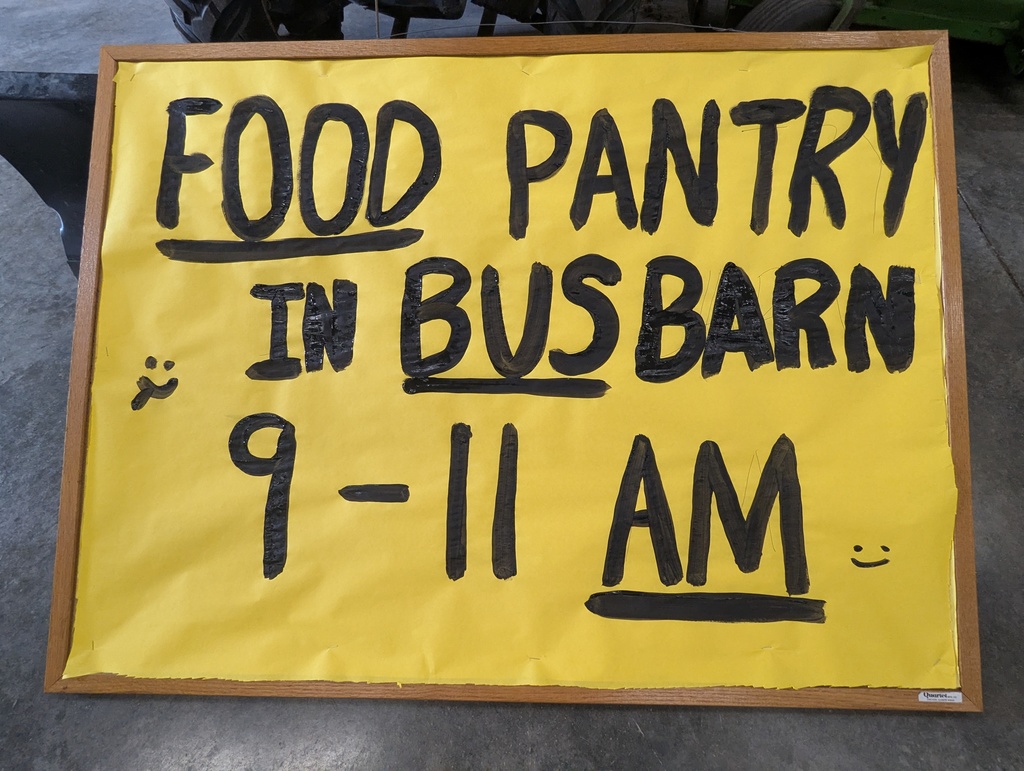 FOOD PANTRY
IN BUSBARN
9-11 AM
Quartet